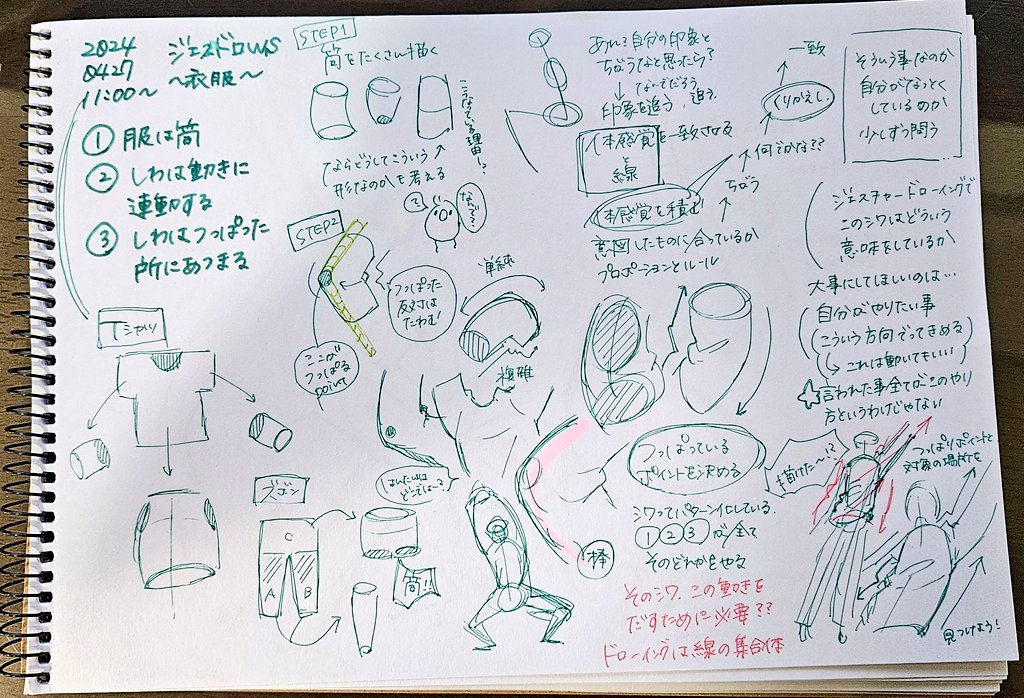 2024
0427
11:00〜
ジェスドロWS
〜衣服〜
① 服は筒
② しわは動きに
連動する
③ しわはつっぱった
所にあつまる
STEP1
筒をたくさん描く
こうなっている理由!?
ならどうしてこういう
形なのかを考える
なんで?
STEP2
つっぱった
反対は
たわむ
ここが
つっぱる
point
単純
複雑
Tシャツ
ズボン
C
A B
筒!!
はんたいは
どこでしょ〜?
あれ?自分の印象と
ちがうなと思ったら?
なんでだろう
印象を追う、追う
体感覚を一致させる
と
線
体感覚を積む
意図したものに合っているか
プロポーションとルール
一致
くりかえし
何でかな??
ちがう
そういう事なのか
自分がなっとく
しているのか
少しずつ問う
ジェスチャードローイングで
このシワはどういう
意味をしているか
大事にしてほしいのは…
自分がやりたい事
こういう方向でってきめる
これは動いてもいい
☆言われた事全てがこのやり
方というわけじゃない
つっぱっている
ポイントを決める
シワってパターン化している。
①②③が全て
そのどれかをやる
棒
そのシワ、この動きを
だすために必要??
ドローイングは線の集合体
描けた〜!?
つっぱりポイントと
対象の場所を
見つけよう!